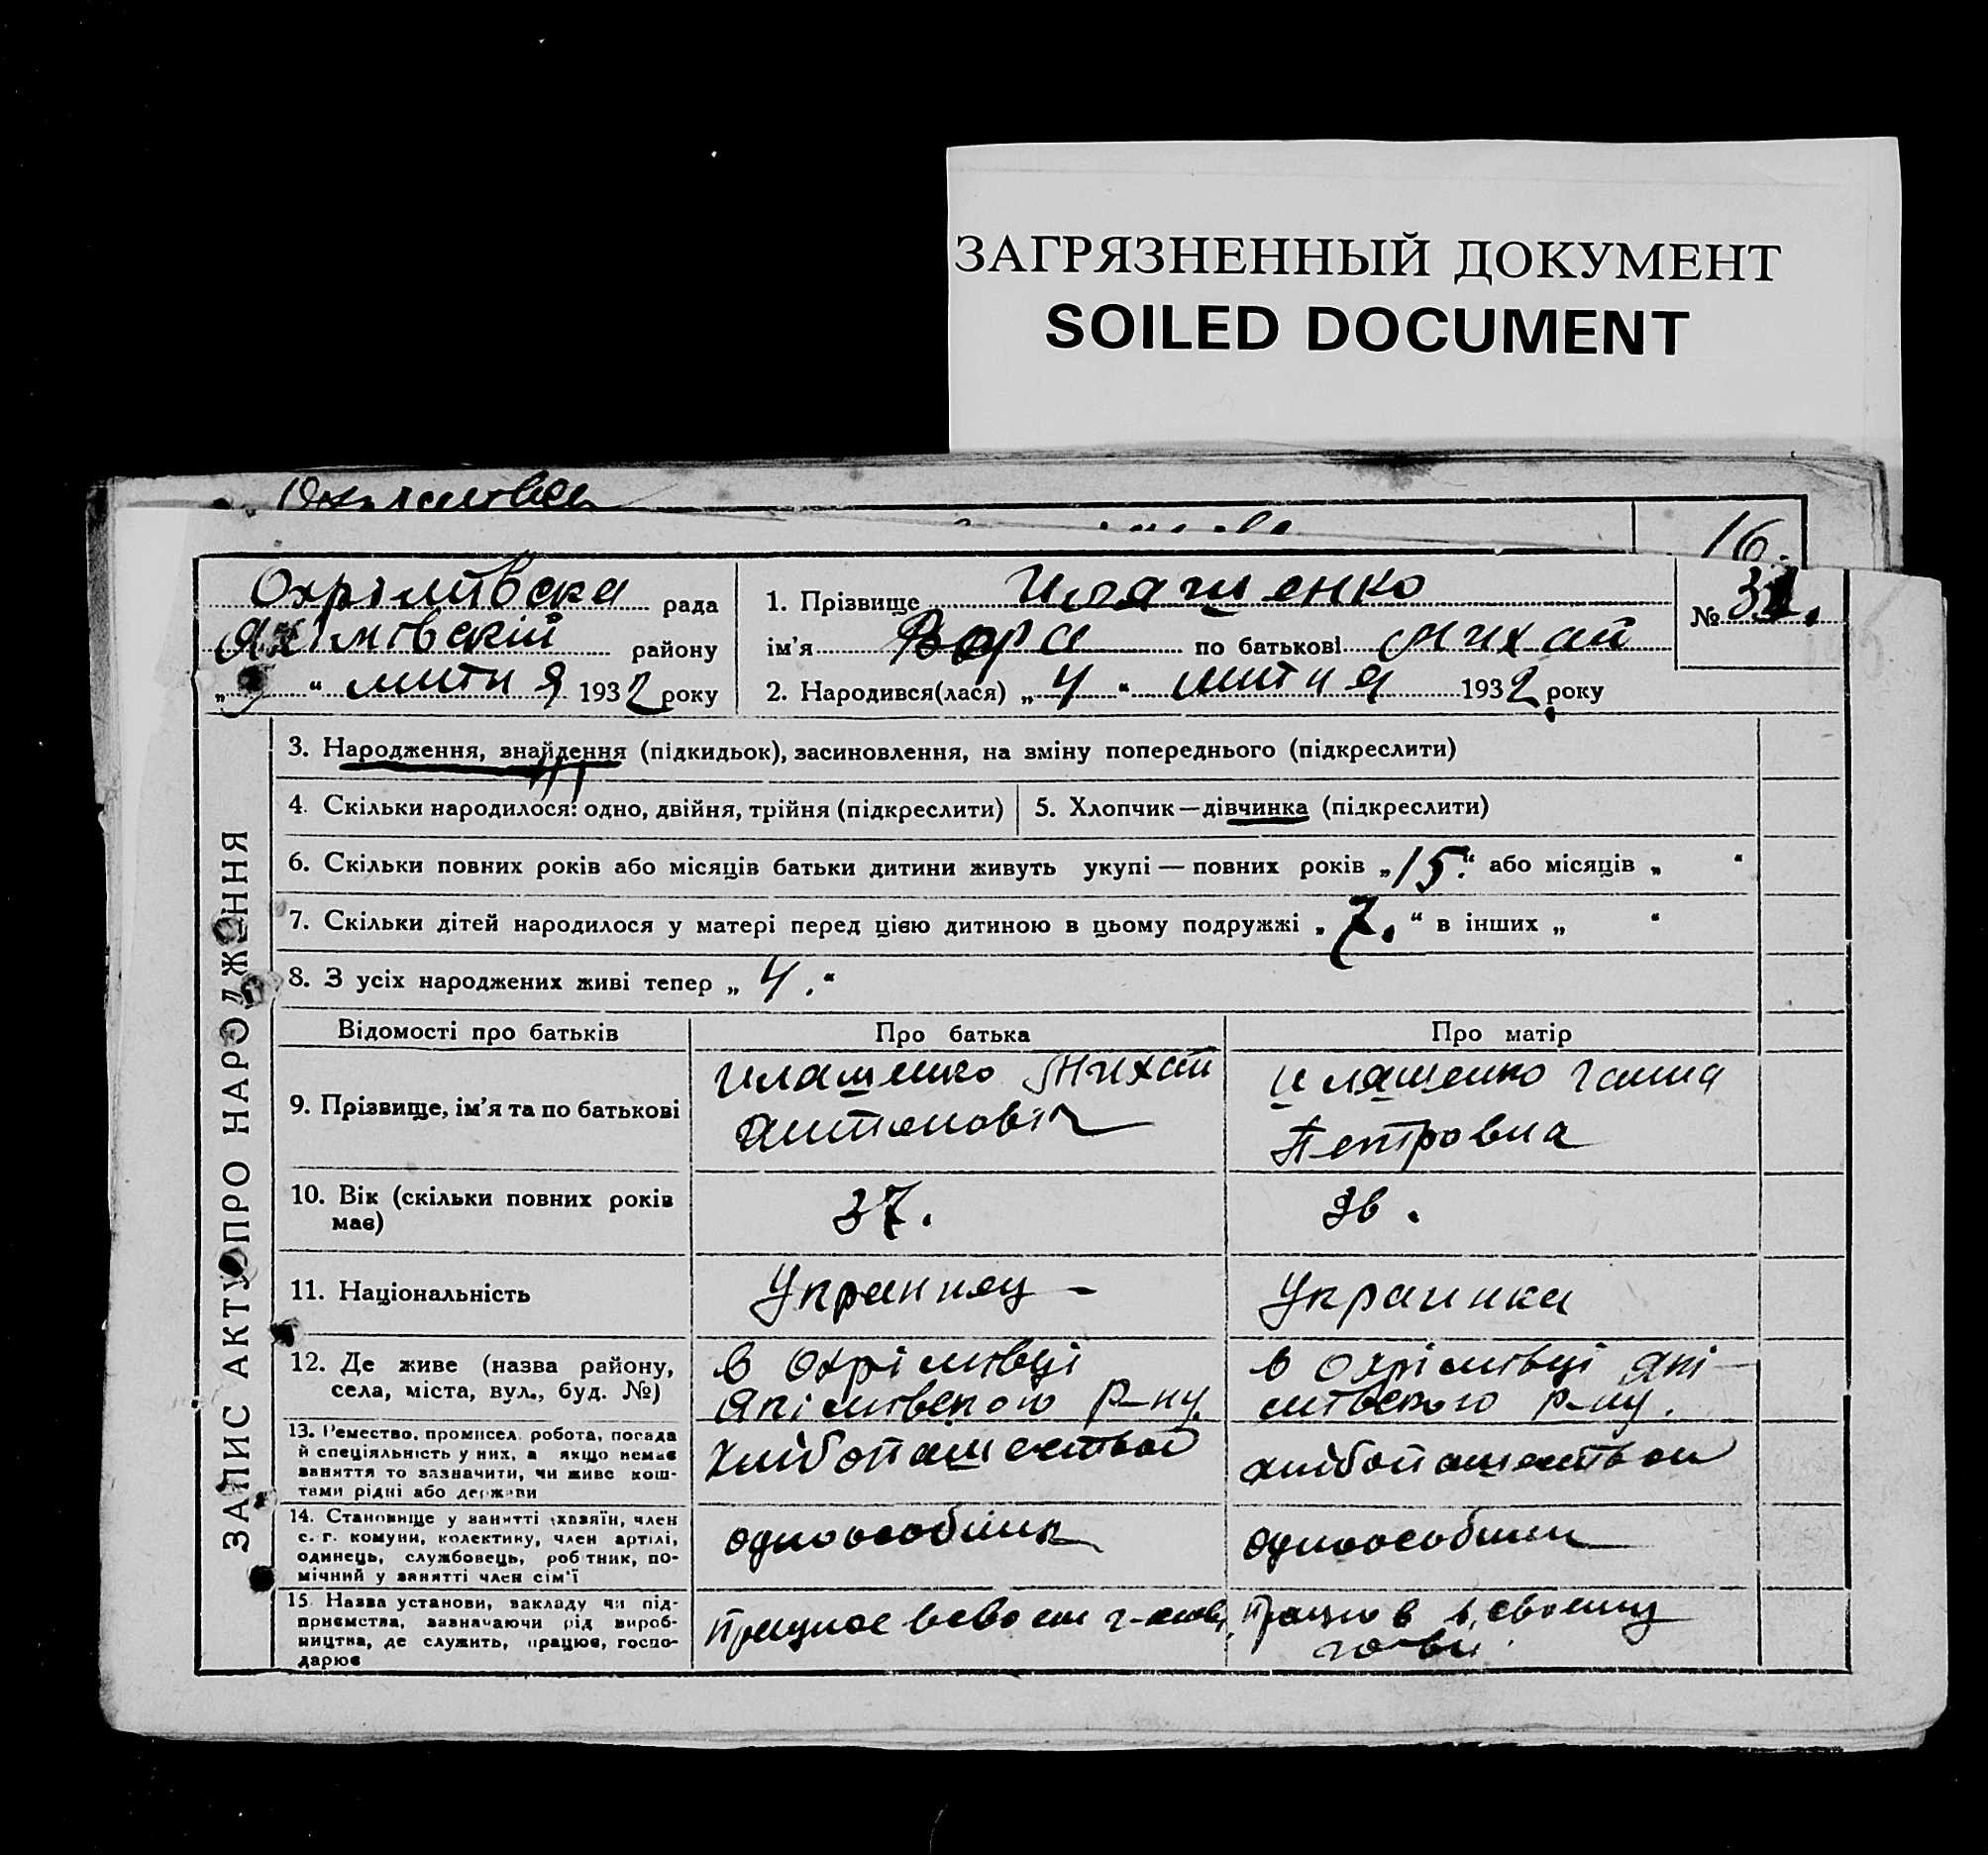 ЗАГРЯЗНЕННЫЙ ДОКУМЕНТ
SOILED DOCUMENT
16.
Охрімівска рада
Якімівскій району
“ лютня 1932 року
1. Прізвище Иляшенко
ім'я Вера по батькові Михай
2. Народився(лася) „4“ лютня 1932 року
№ 31.
ЗАПИС АКТУ ПРО НАРОДЖЕННЯ
3. Народження, знайдення (підкидьок), засиновлення, на зміну попереднього (підкреслити)
4. Скільки народилося: одно, двійня, трійня (підкреслити)
5. Хлопчик—дівчинка (підкреслити)
6. Скільки повних років або місяців батьки дитини живуть укупі — повних років „15.“ або місяців „ “
7. Скільки дітей народилося у матері перед цією дитиною в цьому подружжі „7.“ в інших „ “
8. З усіх народжених живі тепер „4.“
Відомості про батьків
Про батька
Про матір
9. Прізвище, ім'я та по батькові
Илашенко Михай
Антонович
Иляшенко Ганна
Петровна
10. Вік (скільки повних років
має)
37.
36.
11. Національність
Украинец –
Украинка
12. Де живе (назва району,
села, міста, вул., буд. №)
в Охрімівці
Якімівского р-ну.
в Охрімівці Які-
мівского р-ну.
13. Ремество, промисел, робота, посада
й спеціяльність у них, а якщо немає
заняття то зазначити, чи живе кош-
тами рідні або держави
хлібопашество
хлібопашество
14. Становище у занятті (хазяїн, член
с.-г. комуни, колективу, член артілі,
одинець, службовець, робітник, по-
мічний у занятті член сім'ї
одноособник
одноособник
15. Назва установи, закладу чи під-
приємства, зазначаючи рід вироб-
ництва, де служить, працює, госпо-
дарює
Працює в своєм
в своєму